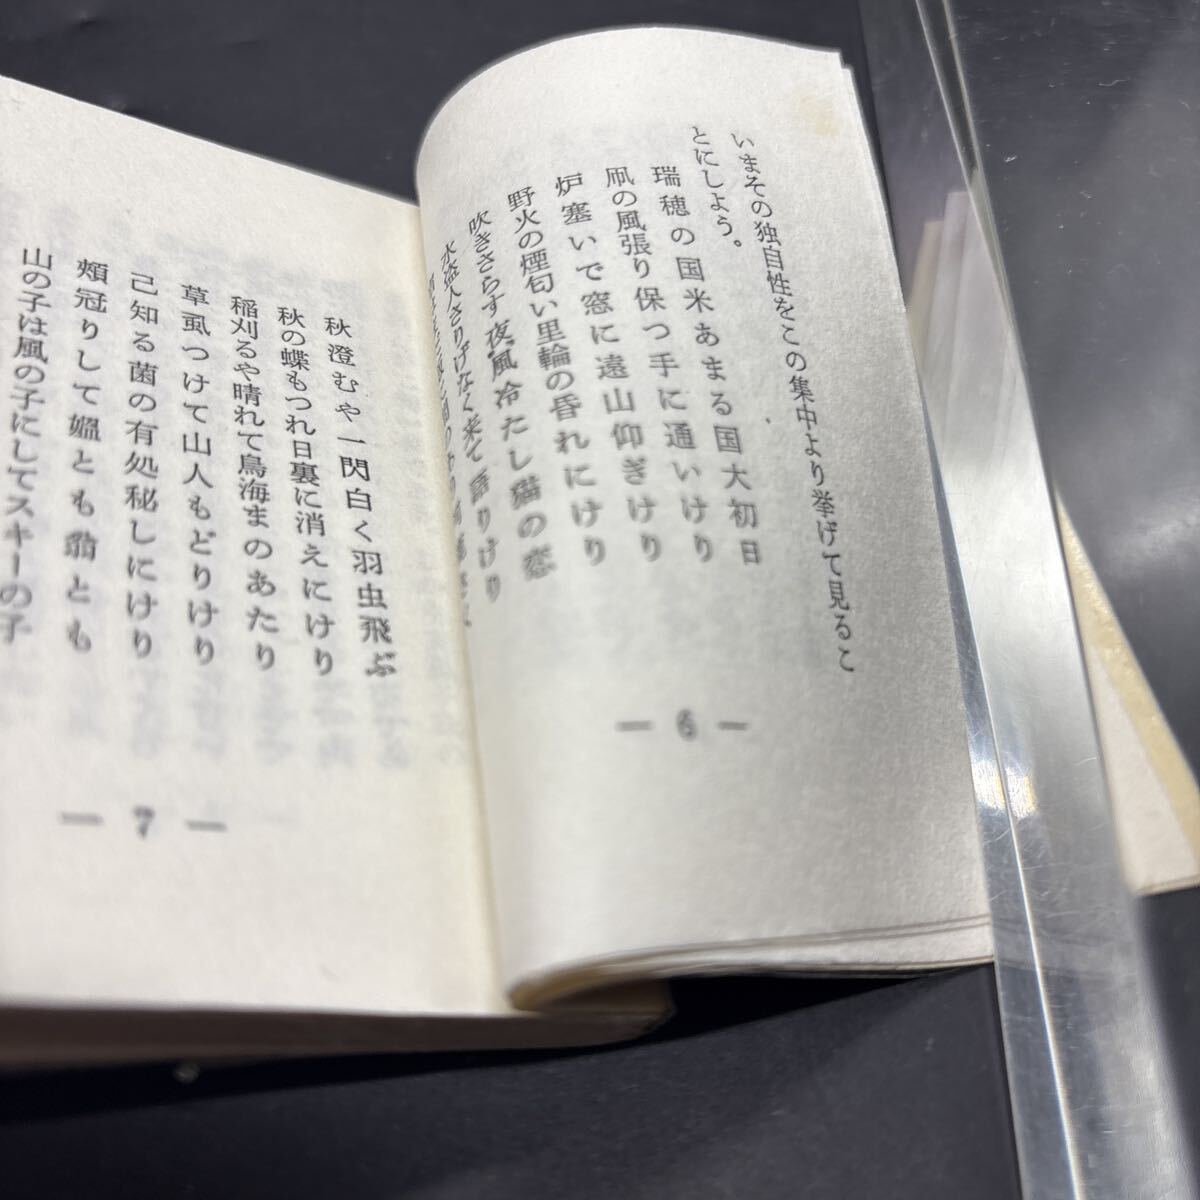 いまその独自性をこの集中より挙げて見るこ
とにしよう。
瑞穂の国米あまる国大初日
凧の風張り保つ手に通いけり
炉塞いで窓に遠山仰ぎけり
野火の煙匂い里輪の昏れにけり
吹きさらす夜風冷たし猫の恋
水盗人さりげなく来て語りけり
― 6 ―
秋澄むや一閃白く羽虫飛ぶ
秋の蝶もつれ日裏に消えにけり
稲刈るや晴れて鳥海まのあたり
草虱つけて山人もどりけり
己知る菌の有処秘しにけり
頬冠りして媼とも翁とも
山の子は風の子にしてスキーの子
― 7 ―